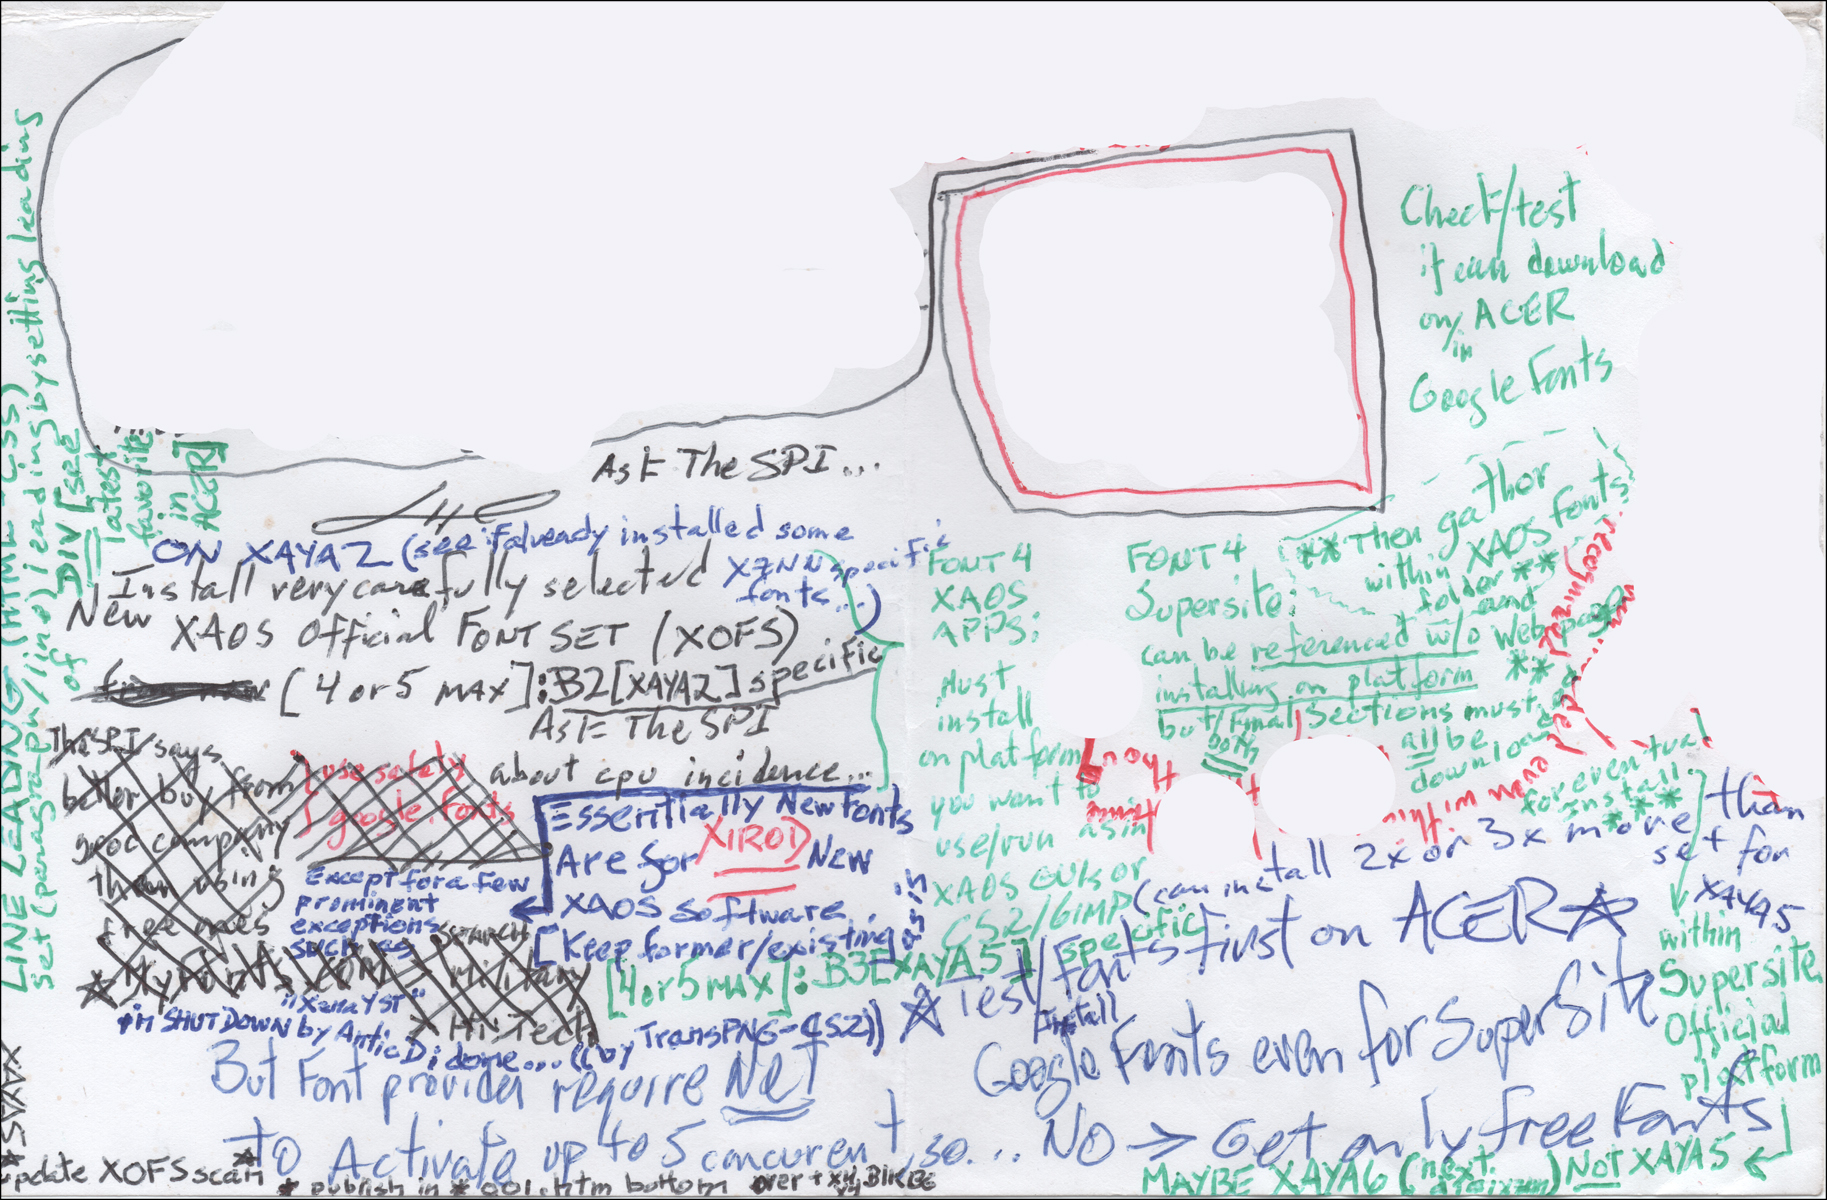 LINE LEADING (HTML-CSS)
set (paragraph/line) leading by setting leading
of
DIV [size
latest
favorite
in
ACER]
Ask The SPI...
ON XAYA2 (see if already installed some
XZNN specific
fonts...)
Install very carefully selected
New XAOS Official FONT SET (XOFS)
[4 or 5 MAX]: B2[XAYA2] specific
Ask The SPI
about cpu incidence...
The SPI says
better buy from
good company
than using
free ones
use safely
google.fonts
Except for a few
prominent
exceptions
such as
search
Military
Hi Tech
in SHUTDOWN by Antic Di done... ((by TransPNG-CS2))
Essentially New Fonts
Are for XIROD New
XAOS Software
[Keep former/existing
But Font provider require Net
to Activate up to 5 concurent, so... NO → Get only free Fonts
XAYA5
update XOFS scan
* publish in * 001.htm bottom over +
Check/test
if can download
on/in ACER
Google Fonts
FONT 4
XAOS
APPS:
Must
install
on platform
you want to
use/run as in
XAOS GUIs or
CS2/GIMP
specific
[4 or 5 MAX]: B3[XAYA5]
FONT 4
Supersite:
can be referenced w/o Web page
installing on platform **
but/Email Sections must
both
all be
download
for eventual
install **
** Then gathor
within XAOS fonts
folder **
and
(recognized
even
(can install 2x or 3x more than
set for
XAYA5
☆ Test/Fonts first on ACER ☆
Install
Google Fonts even for SuperSite
within
Supersite
Official
platform
MAYBE XAYA6 (next) Not XAYA5